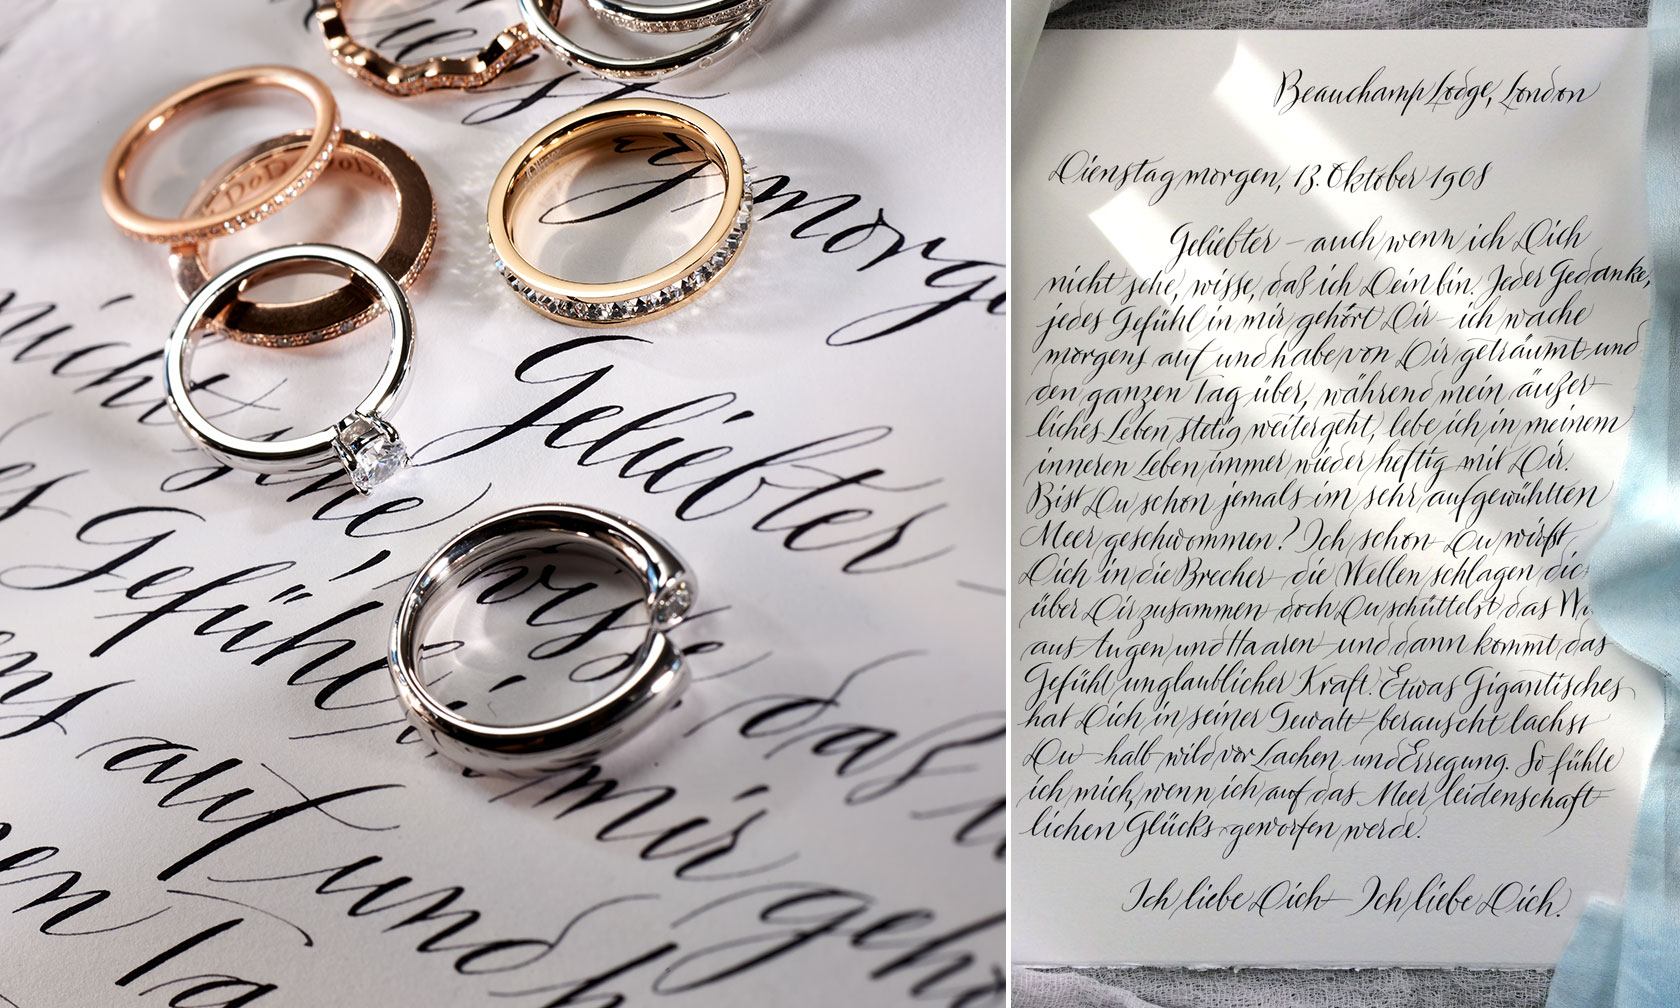 DoDo
g morge
Geliebter –
nicht sehe, wisse, daß
Gefühl in mir gehö
auf und h
en Ta
Beauchamp Lodge, London
Dienstag morgen, 13. Oktober 1908
Geliebter – auch wenn ich Dich
nicht sehe, wisse, daß ich Dein bin. Jeder Gedanke,
jedes Gefühl in mir gehört Dir – ich wache
morgens auf und habe von Dir geträumt und
den ganzen Tag über, während mein äußer-
liches Leben stetig weitergeht, lebe ich in meinem
inneren Leben immer wieder heftig mit Dir.
Bist Du schon jemals im sehr aufgewühlten
Meer geschwommen? Ich schon – Du wirfst
Dich in die Brecher – die Wellen schlagen die
über Dir zusammen – doch Du schüttelst das
aus Augen und Haaren – und dann kommt das
Gefühl unglaublicher Kraft. Etwas Gigantisches
hat Dich in seiner Gewalt – berauscht lachst
Du – halb wild vor Lachen und Erregung. So fühle
ich mich, wenn ich auf das Meer leidenschaft-
lichen Glücks geworfen werde.
Ich liebe Dich – Ich liebe Dich.